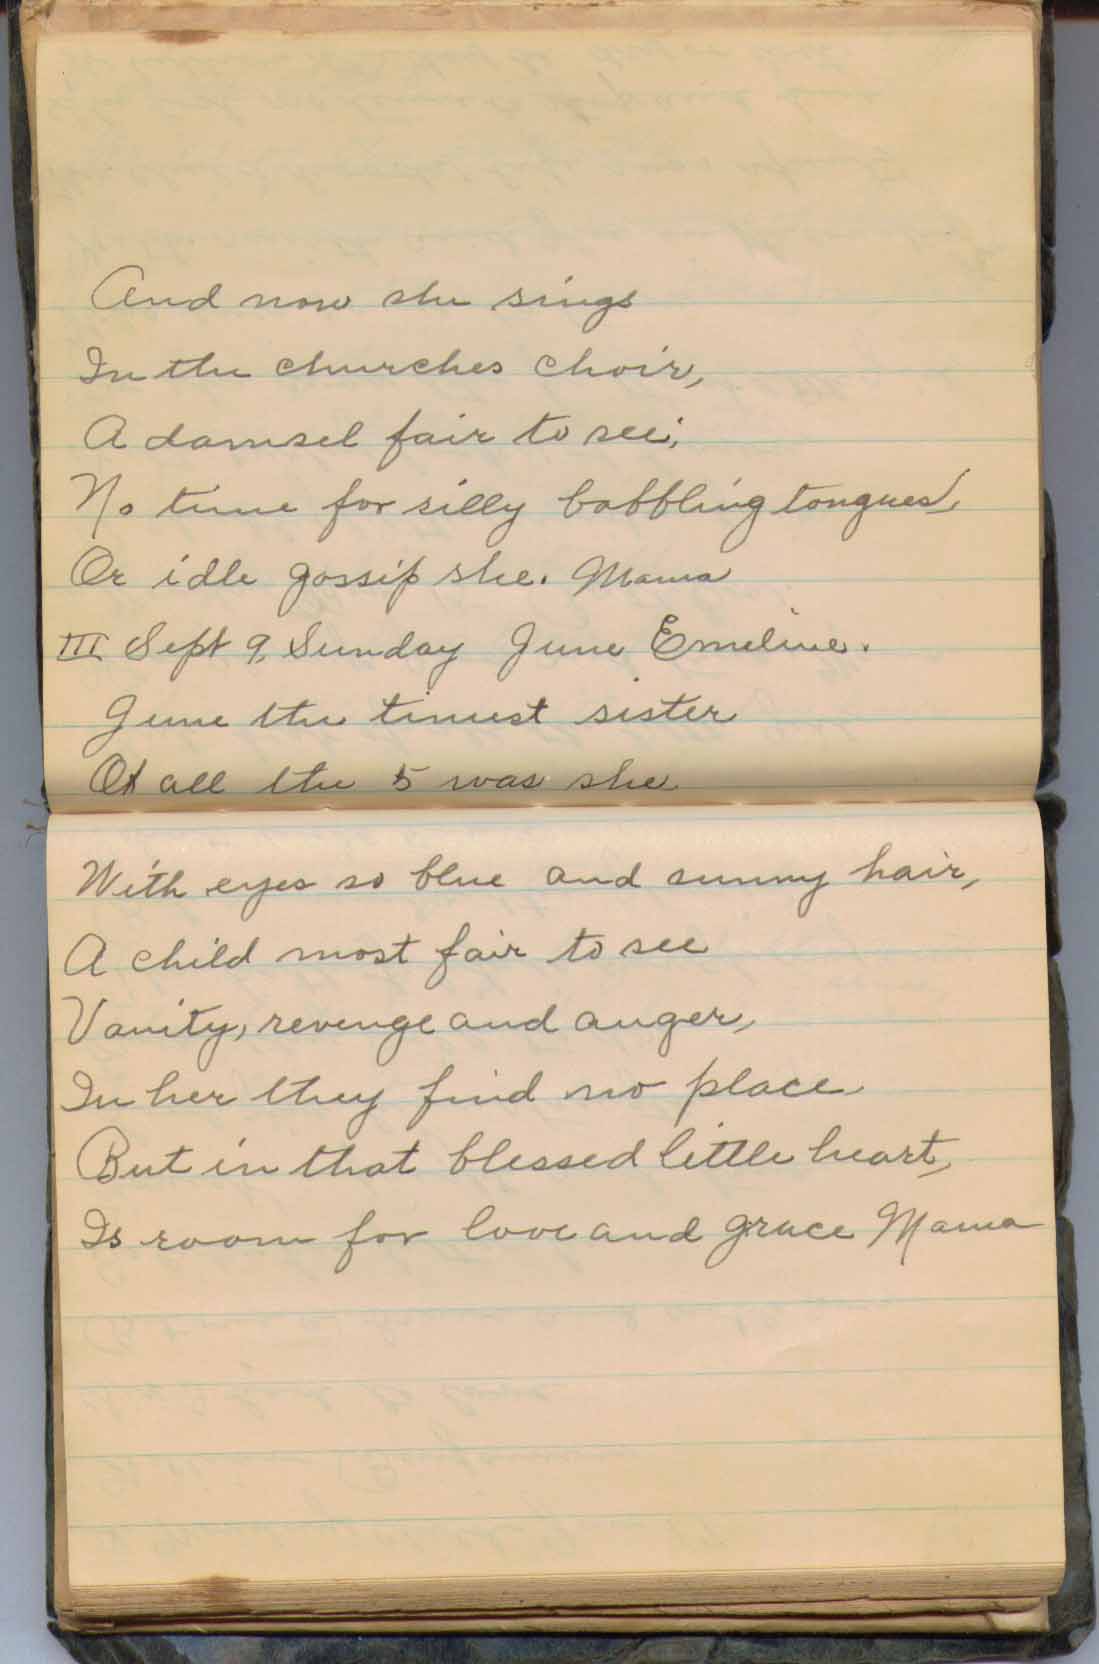 And now she sings
In the churches choir,
A damsel fair to see;
No time for silly babbling tongues,
Or idle gossip she. Mama
III Sept 9, Sunday June Emeline.
June the tiniest sister
Of all the 5 was she
With eyes so blue and sunny hair,
A child most fair to see
Vanity, revenge and anger,
In her they find no place
But in that blessed little heart,
Is room for love and grace Mama